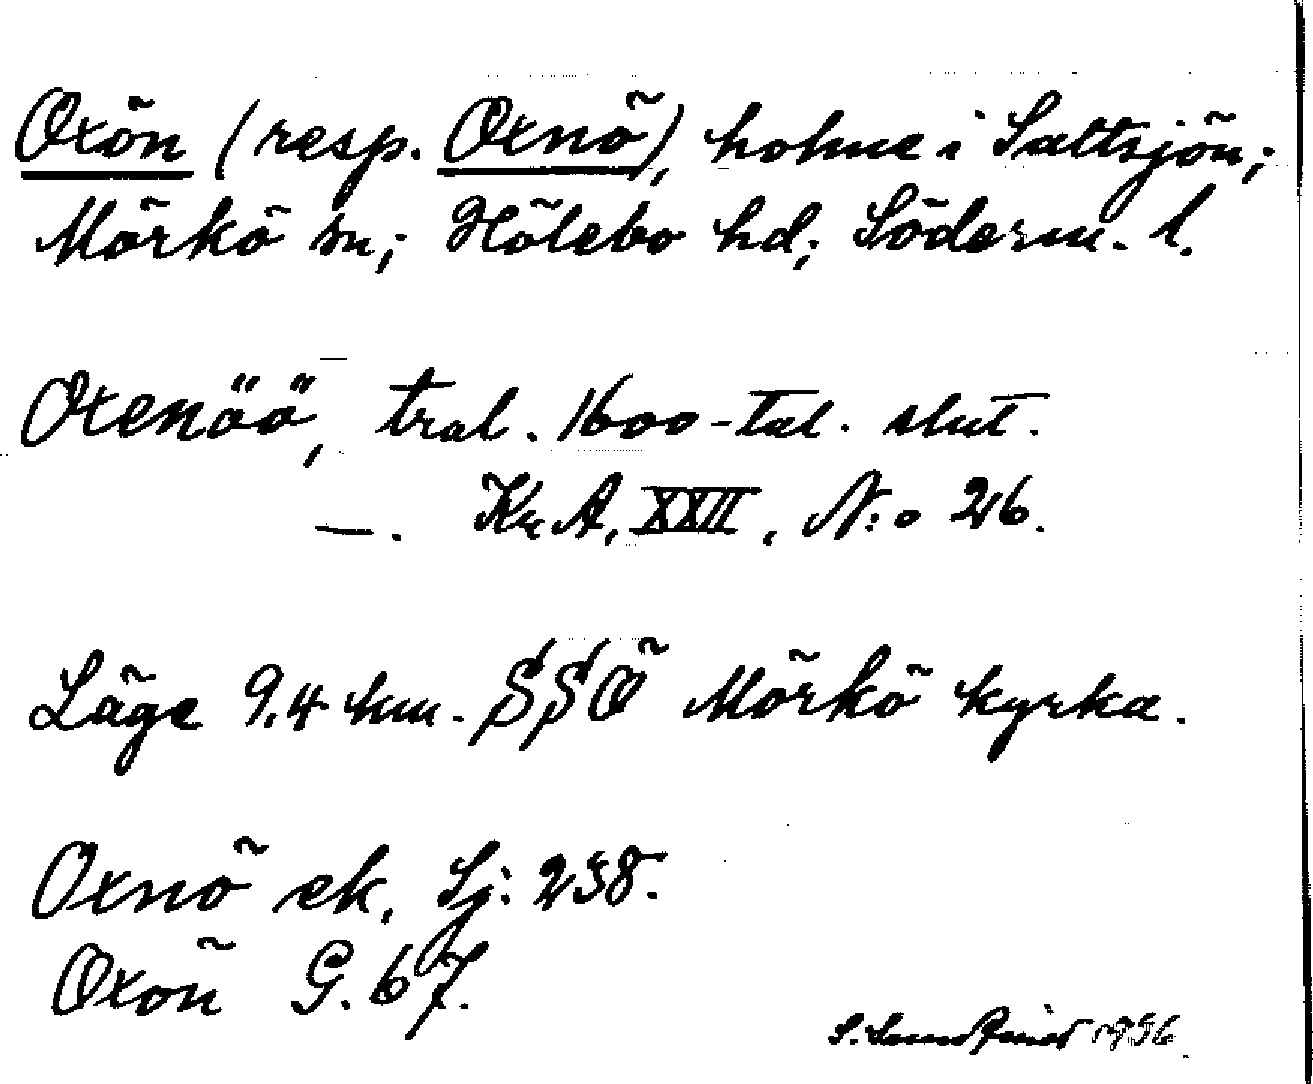 Oxön (resp. Oxnö), holme i Saltsjön;
Mörkö sn; Hölebo hd; Söderm. l.
Oxenöö, tral. 1600-tal. slut.
—. Kr. A. XXII, N:o 26.
Läge 9.4 km. SSÖ Mörkö kyrka.
Oxnö ek. Sj: 238.
Oxön G. 67.
S. 1936.